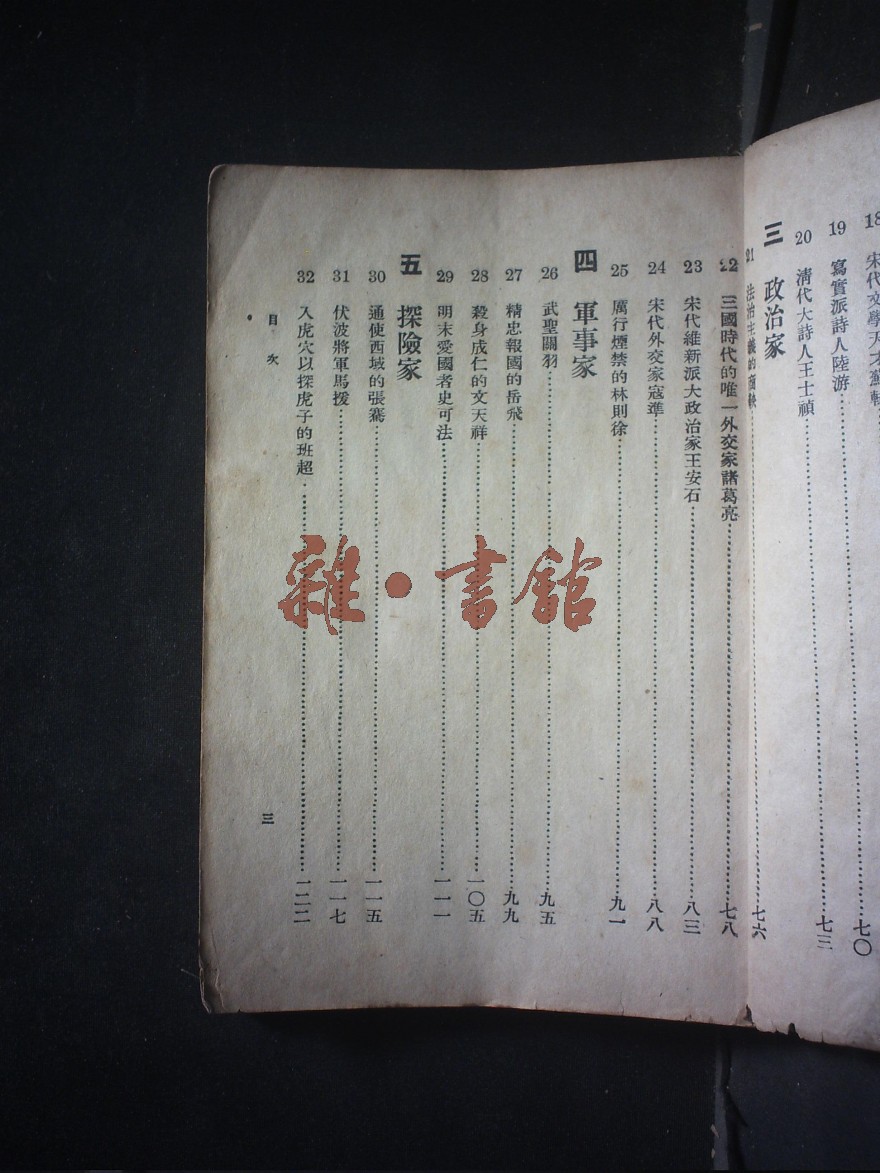 18 宋代文學天才蘇軾……七〇
19 寫實派詩人陸游
20 清代大詩人王士禎……七三
三 政治家
21 法治主義的商鞅……七六
22 三國時代的唯一外交家諸葛亮……七八
23 宋代維新派大政治家王安石……八三
24 宋代外交家寇準……八八
25 厲行煙禁的林則徐……九一
四 軍事家
26 武聖關羽……九五
27 精忠報國的岳飛……九九
28 殺身成仁的文天祥……一〇五
29 明末愛國者史可法……一一一
五 探險家
30 通使西域的張騫……一一五
31 伏波將軍馬援……一一七
32 入虎穴以探虎子的班超……一二二
目次
三
雜·書館